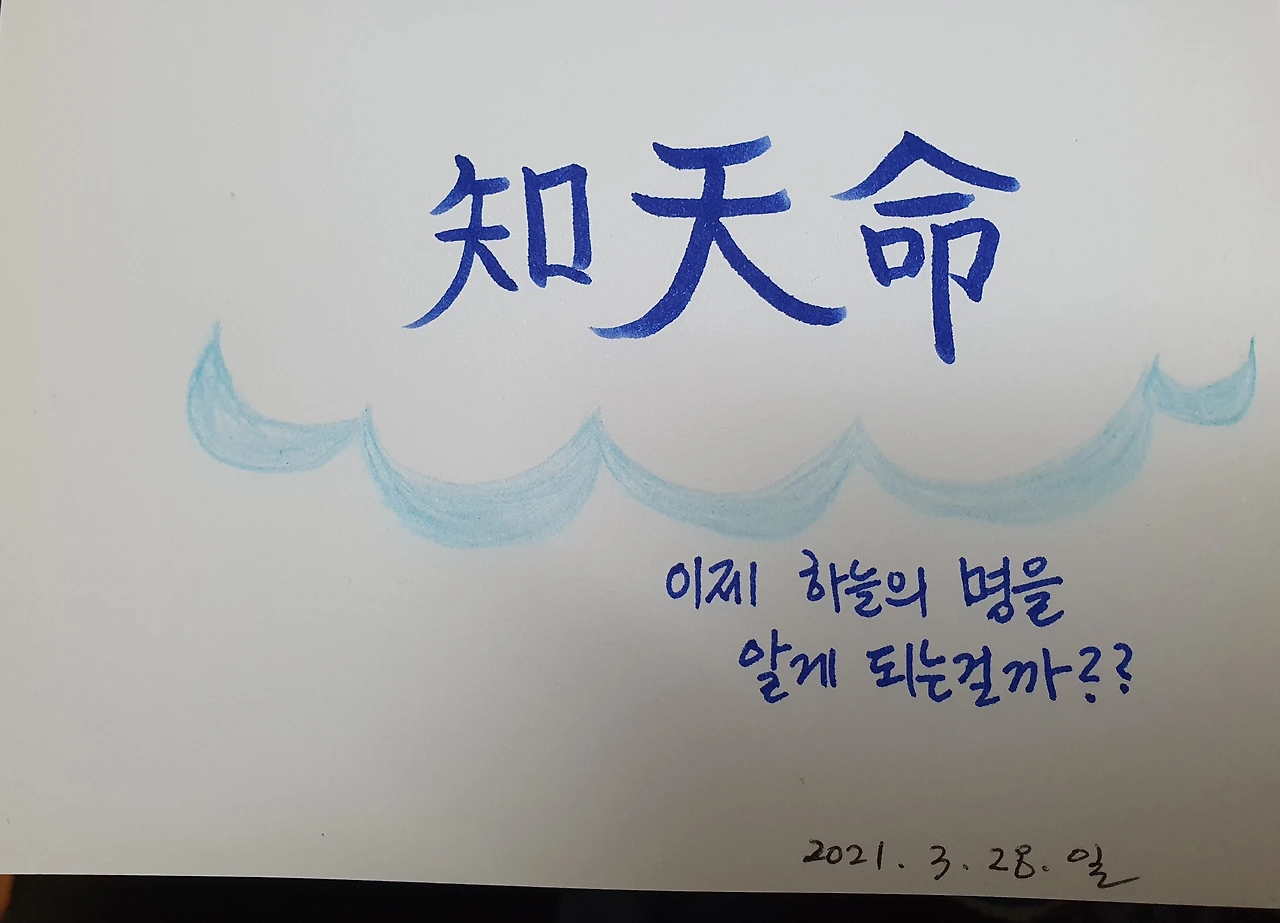 知天命
이제 하늘의 명을
알게 되는걸까??
2021. 3. 28. 일